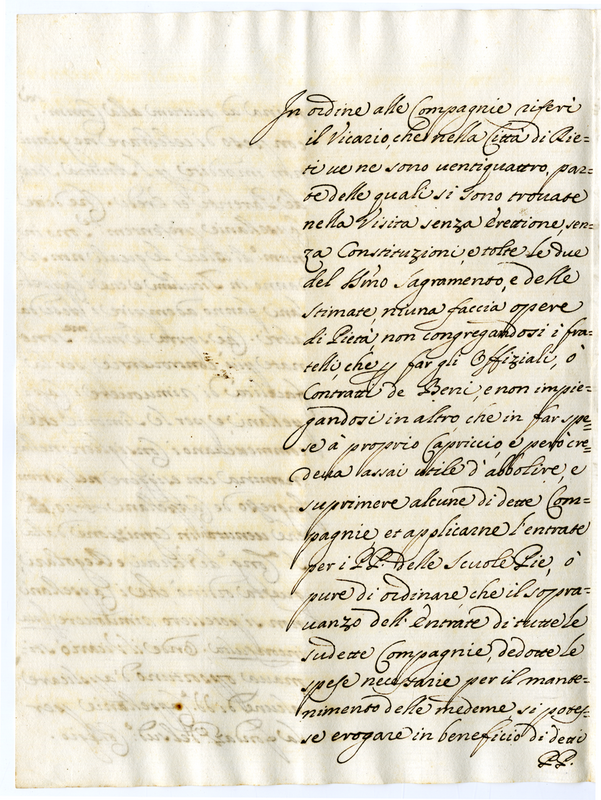 In ordine alle Compagnie riferì
il Vicario, che nella Città di Rie-
ti ve ne sono ventiquattro, par-
te delle quali si sono trovate
nella Visita senza Erezione, sen-
za Constituzioni, e tolte le due
del SSmo Sagramento, e delle
Stimate, niuna faccia opere
di Pietà, non congregandosi i fra-
telli, che p far gli Offiziali, ò
Contratti de Beni, e non impie-
gandosi in altro, che in far spe-
se à proprio Capriccio, e però cre-
deva assai utile d'abbolire, e
suprimere alcune di dette Com-
pagnie, et applicarne l'entrate
per i PP. delle Scuole Pie, ò
pure di ordinare che il sopra-
vanzo dell'Entrate di tutte le
sudette Compagnie, dedotte le
spese necessarie per il mante-
nimento delle medeme si potes-
se erogare in beneficio di detti
PP.